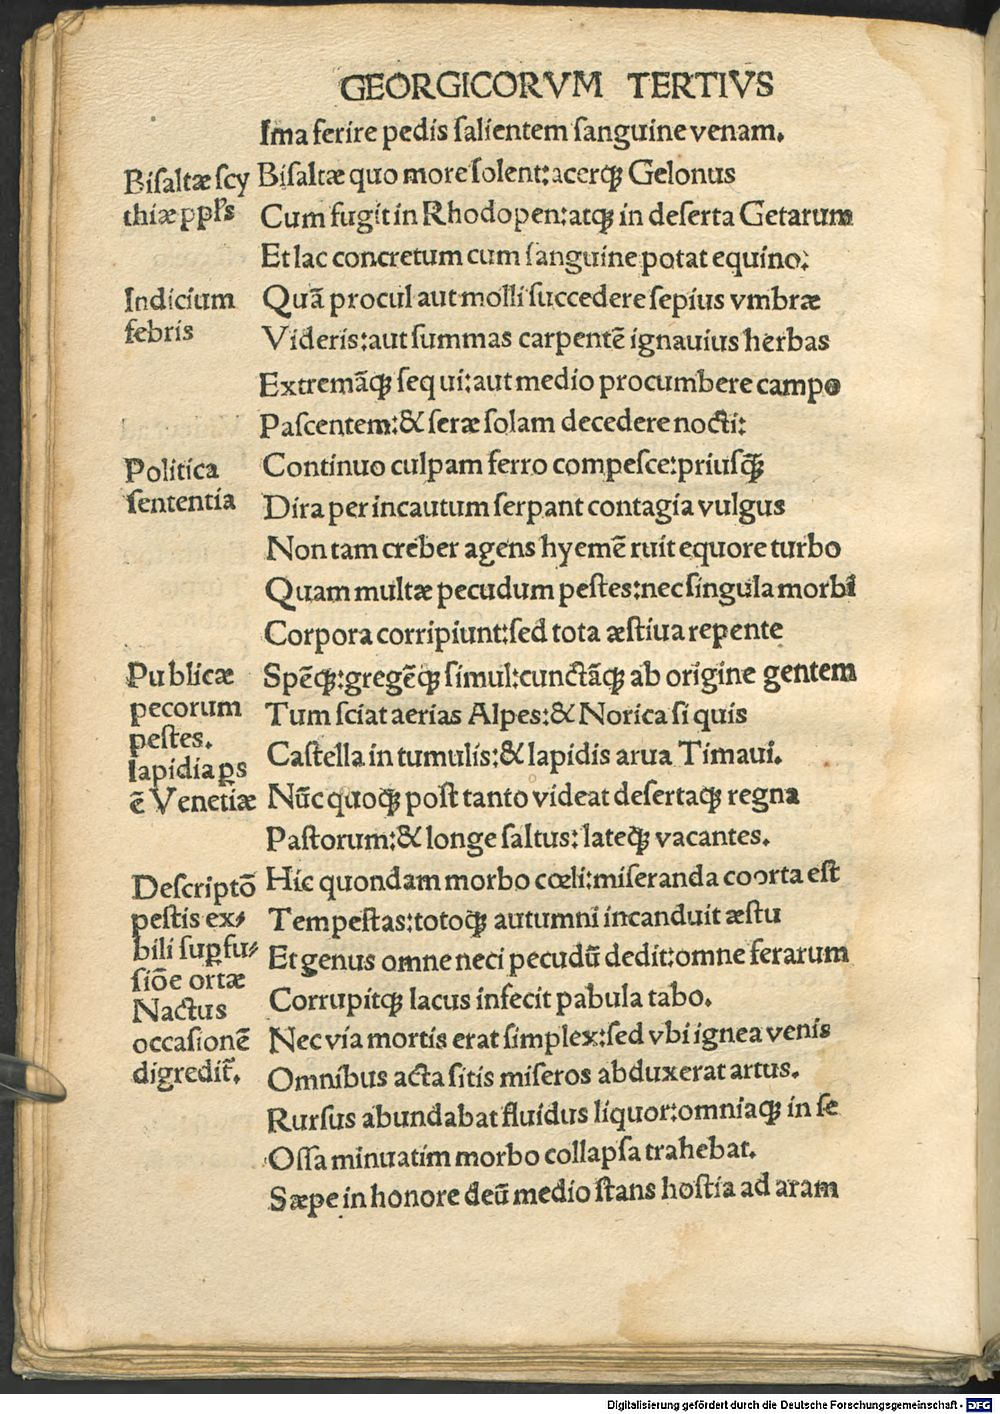 GEORGICORVM TERTIVS
Ima ferire pedis ſalientem ſanguine venam.
Biſaltæ ſcy
thiæ ppľs
Biſaltæ quo more ſolent: acerqꝫ Gelonus
Cum fugit in Rhodopen: atqꝫ in deſerta Getarum
Et lac concretum cum ſanguine potat equino:
Indicium
febris
Quā procul aut molli ſuccedere ſepius vmbræ
Videris: aut ſummas carpentē ignauius herbas
Extremāqꝫ ſequi: aut medio procumbere campo
Paſcentem: & ſeræ ſolam decedere nocti:
Politica
ſententia
Continuo culpam ferro compeſce: priuſqꝫ̄
Dira per incautum ſerpant contagia vulgus
Non tam creber agens hyemē ruit equore turbo
Quam multæ pecudum peſtes: nec ſingula morbi
Corpora corripiunt: ſed tota æſtiua repente
Publicæ
pecorum
peſtes.
lapidia ꝑs
ē Venetiæ
Spēqꝫ: gregēqꝫ ſimul: cunctāqꝫ ab origine gentem
Tum ſciat aerias Alpes: & Norica ſi quis
Caſtella in tumulis: & lapidis arua Timaui.
Nūc quoqꝫ poſt tanto videat deſertaqꝫ regna
Paſtorum: & longe ſaltus: lateqꝫ vacantes.
Deſcriptō
peſtis ex⸗
bili suꝑfu⸗
ſiōe ortæ
Nactus
occaſionē
digredit᷑.
Hic quondam morbo cœli: miſeranda coorta eſt
Tempeſtas: totoqꝫ autumni incanduit æſtu
Et genus omne neci pecudū dedit: omne ferarum
Corrupitqꝫ lacus infecit pabula tabo.
Nec via mortis erat ſimplex: ſed vbi ignea venis
Omnibus acta ſitis miſeros abduxerat artus.
Rurſus abundabat fluidus liquor: omniaqꝫ in ſe
Oſſa minuatim morbo collapſa trahebat.
Sæpe in honore deū medio ſtans hoſtia ad aram
Digitalisierung gefördert durch die Deutsche Forschungsgemeinschaft - DFG